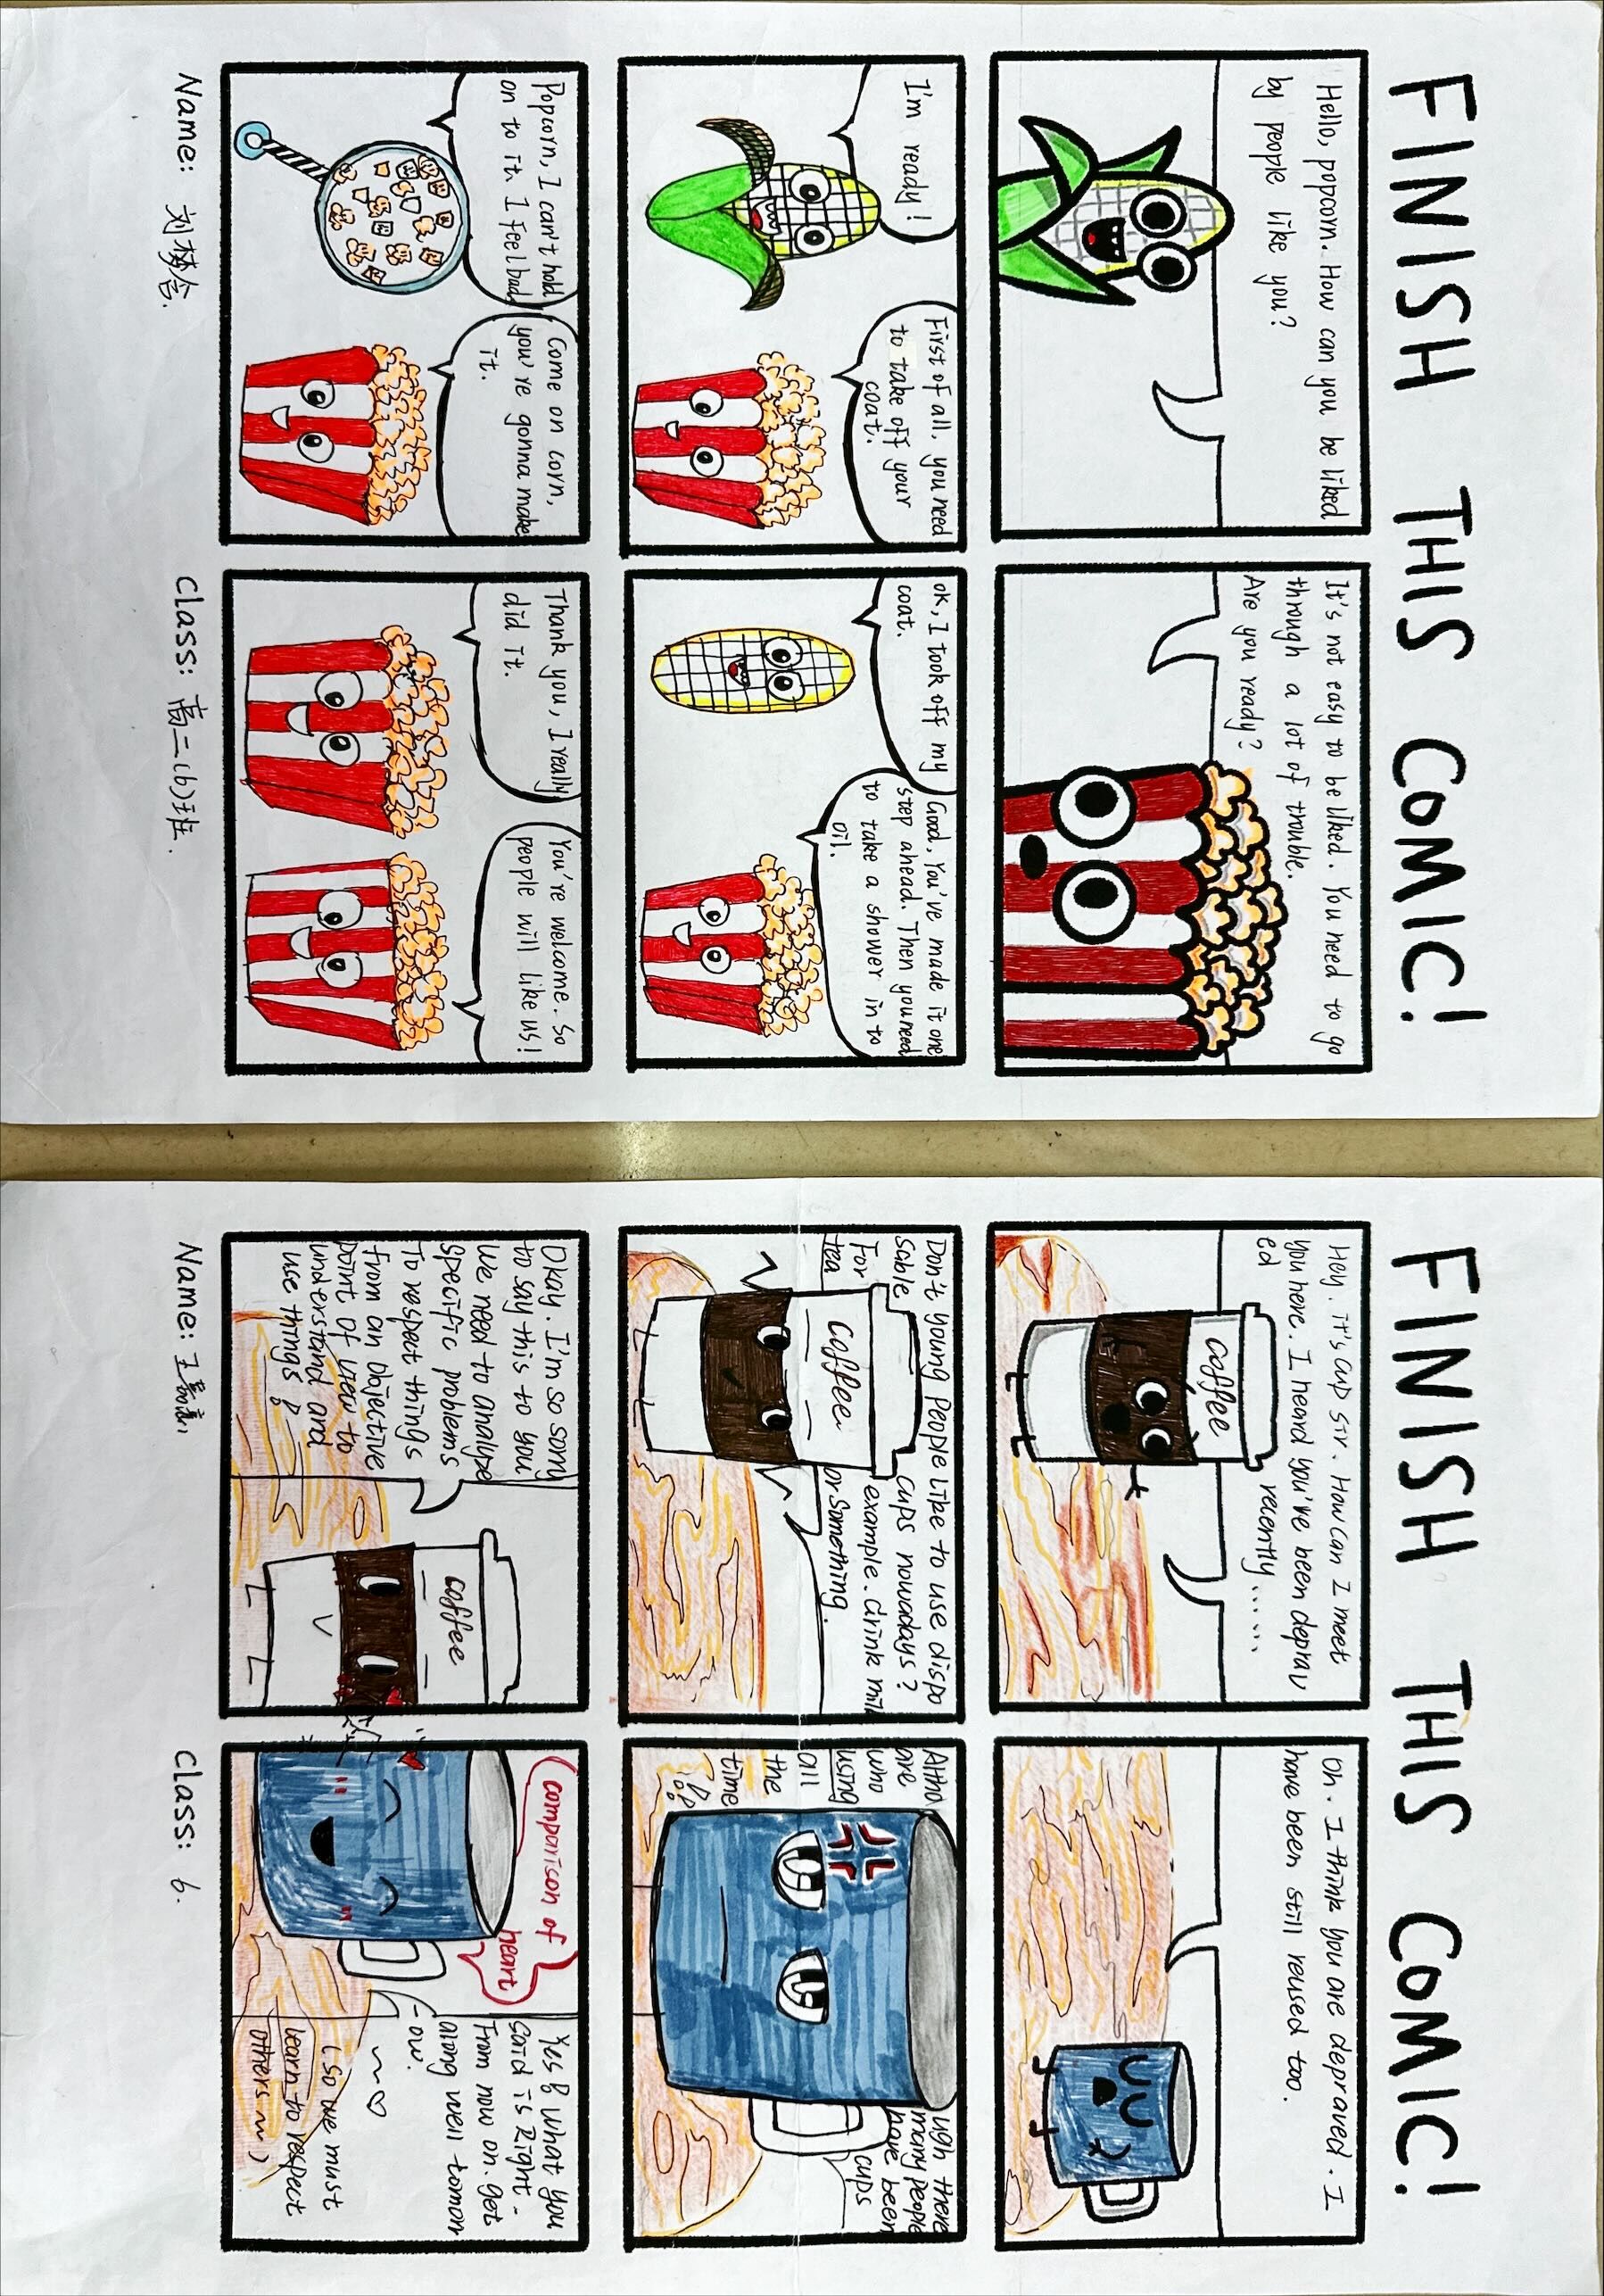 FINISH THIS COMIC!
Hello, popcorn. How can you be liked
by people like you?
It's not easy to be liked. You need to go
through a lot of trouble.
Are you ready?
I'm ready!
First of all. you need
to take off your
coat.
ok, I took off my
coat.
Good. You've made it one
step ahead. Then you need
to take a shower in to
oil.
Popcorn, I can't hold
on to it. I feel bad
Come on corn,
you're gonna make
it.
Thank you, I really
did it.
You're welcome. So
people will like us!
Name: 刘梦含.
Class: 高二(6)班.
FINISH THIS COMIC!
Hey. it's cup sir. How can I meet
you here. I heard you've been deprav
ed recently......
coffee
Oh. I think you are depraved. I
have been still reused too.
Don't young people like to use dispo
sable cups nowadays?
For example. drink milk
tea or something.
coffee
Althougħ there
are many people
who have been
using cups
all
the
time
Okay. I'm so sorry
to say this to you
We need to analype
specific problems
To respect things
from an objective
point of view to
understand and
use things
coffee
comparison of
heart
Yes & what you
said is Right -
From now on. get
along well tomorr
-ow.
(so we must
learn to respect
others~~)
Name: 王
Class: 6.